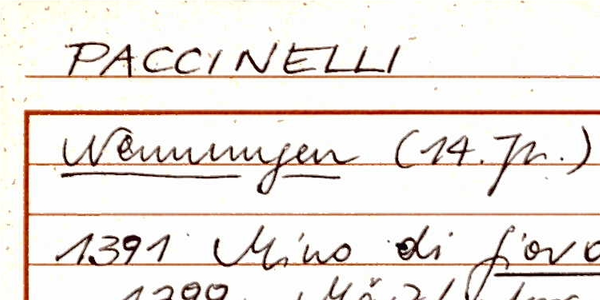 PACCINELLI
Nennungen (14. Jh.)
1391 Mino di Giova
1399